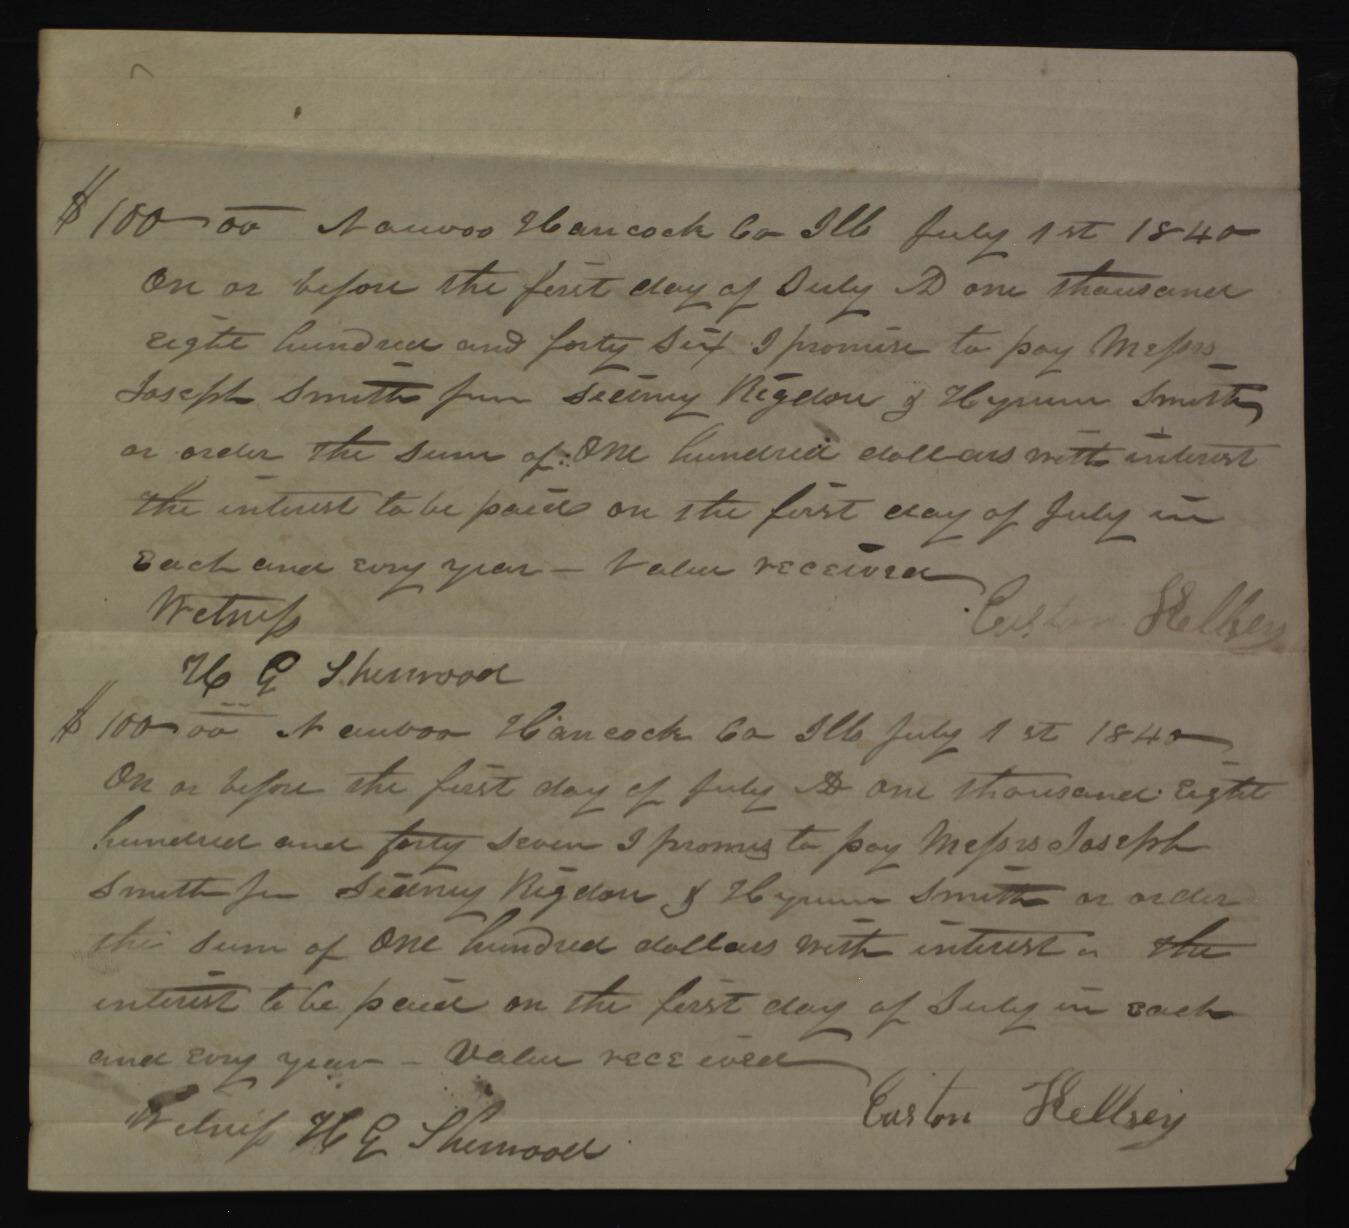 $100 00 Nauvoo Hancock Co Ills July 1st 1840
On or before the first day of July AD one thousand
eight hundred and forty six I promise to pay Messrs
Joseph Smith jun Sidney Rigdon & Hyrum Smith
or order the sum of One hundred dollars with interest
the interest to be paid on the first day of July in
Each and evry year — Value received
Witness
Easton Kellsey
H G Sherwood
$100 00 Nauvoo Hancock Co Ills July 1st 1840
On or before the first day of July AD one thousand Eight
hundred and forty seven I promis to pay Messrs Joseph
Smith jun Sidney Rigdon & Hyrum Smith or order
the sum of One hundred dollars with interest the
interest to be paid on the first day of July in each
and evry year — Value received
Easton Kellsey
Witness H G Sherwood